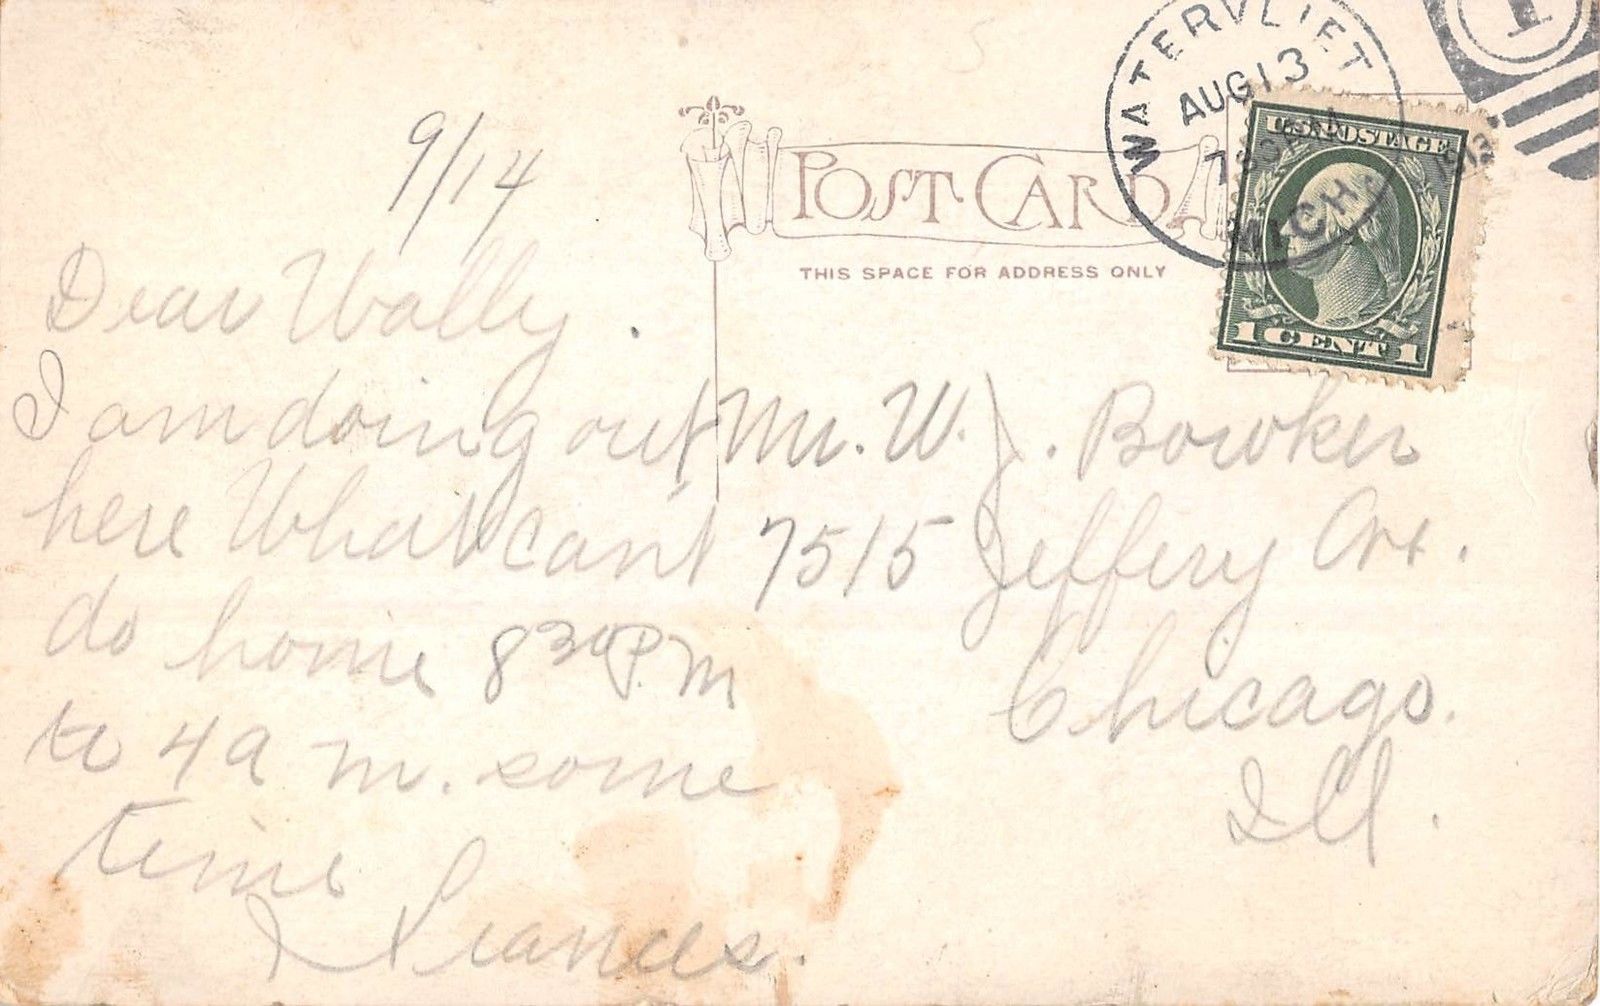 9/14
Dear Wally.
I am doing out
here What cant
do home 8 30 P.M
to 4 a m. some
time
Frances.
POST CARD
THIS SPACE FOR ADDRESS ONLY
WATERVLIET
AUG 13
MICH.
1
U.S. POSTAGE
1 CENT 1
Mr. W. J. Bowker
7515 Jeffery Ave.
Chicago.
Ill.